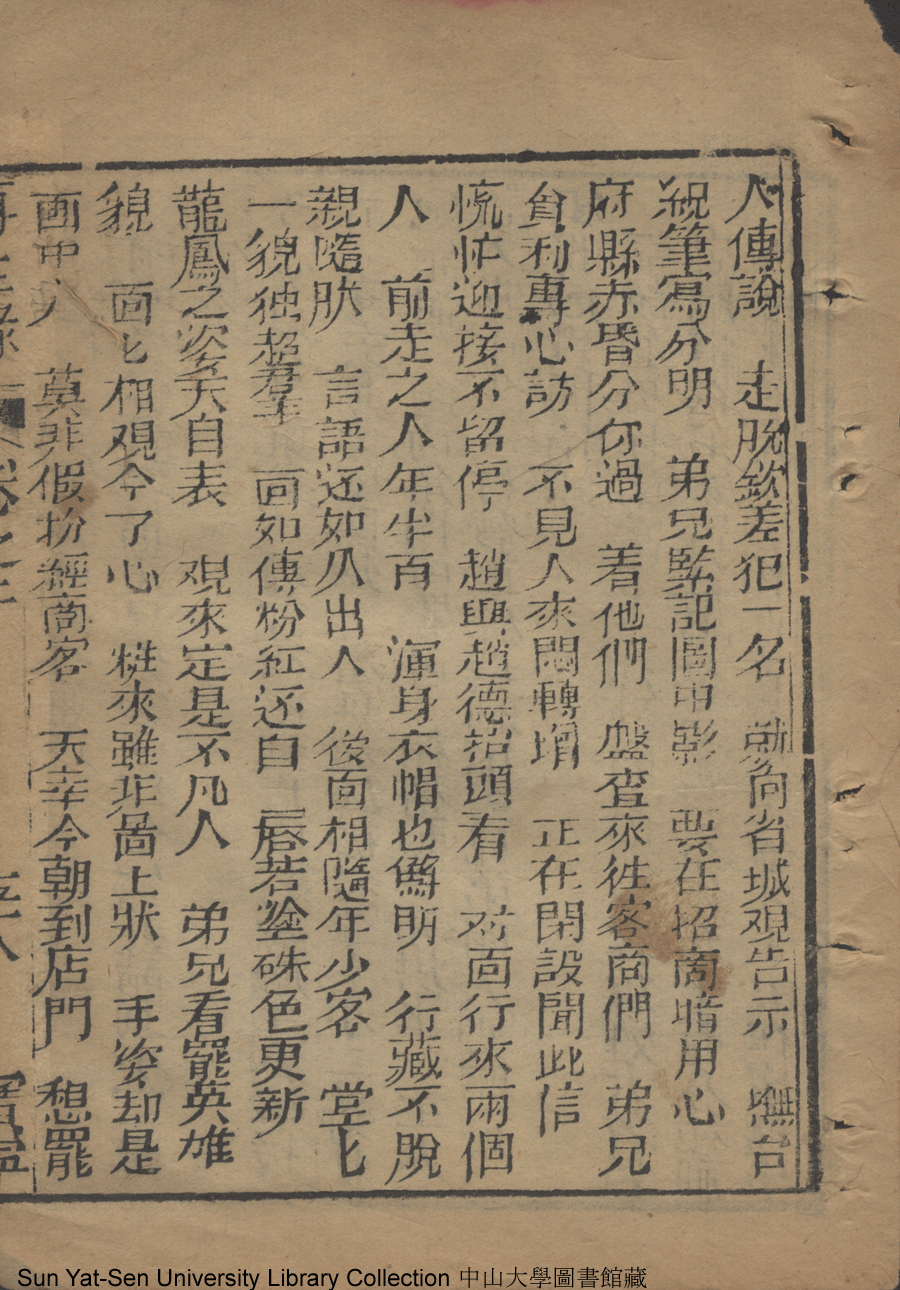 人傳說　走脫欽差犯一名　就向省城观告示　撫台
親筆寫分明　弟兄緊記圖中影　要在招商暗用心
府縣赤昏分你過　着他們　盤查來徃客商們　弟兄
貪利專心訪　不見人來悶轉增　正在閉設聞此信
慌忙迎接不留停　趙興趙德招頭看　对面行來兩個
人　前走之人年半百　渾身衣帽也鮮明　行藏不脫
親隨狀　言語还如仈出人　後面相隨年少客　堂匕
一貌独超羣　面如傳粉紅还自　唇若塗硃色更新
龍鳳之姿天自表　观來定是不凡人　弟兄看罷英雄
貌　面匕相观今了心　粧來雖非啚上狀　手姿却是
画中人　莫非假扮經商客　天幸今朝到店門　想罷
卷之
Sun Yat-Sen University Library Collection 中山大學圖書館藏